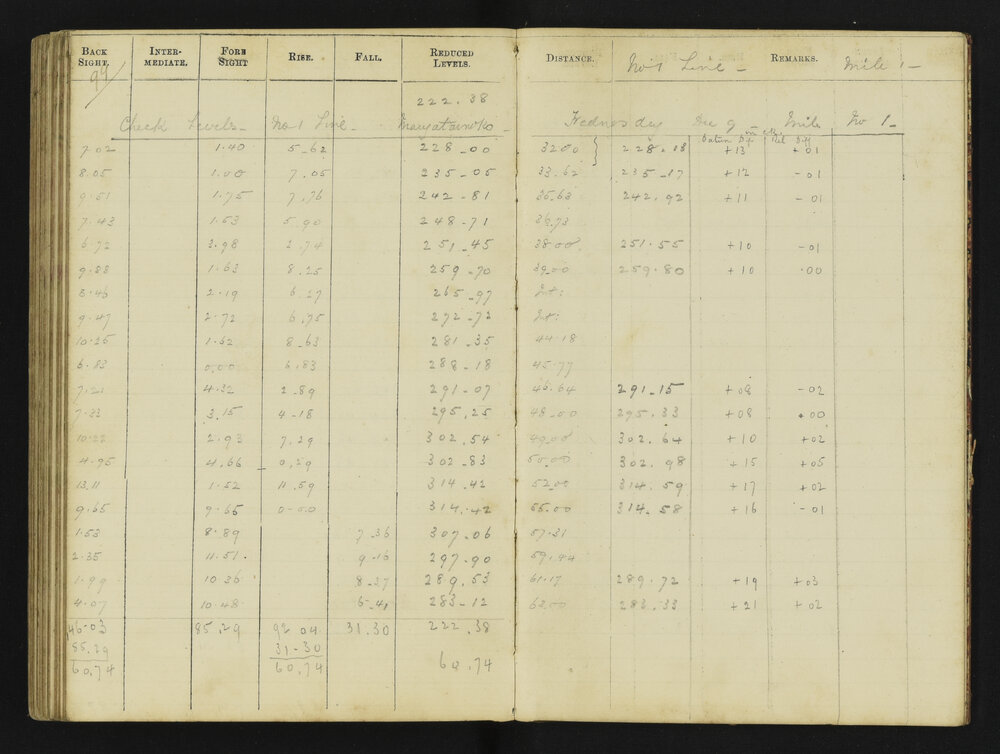 BACK SIGHT. INTER-MEDIATE. FORE SIGHT RISE. FALL. REDUCED LEVELS. DISTANCE. No 1 Line - REMARKS. Mile 1 -
99
222.38
Check Levels - No 1 Line - Wednesday Dec 9 Mile No 1 -
Datum Dif Rel Diff
7.02 1.40 5.62 228.00 3200 228.13 +13 +01
8.05 1.00 7.05 235.05 33.62 235.17 +12 -01
9.51 1.75 7.76 242.81 35.63 242.92 +11 -01
7.43 1.53 5.90 248.71 36.73
6.72 3.98 2.74 251.45 38.00 251.55 +10 -01
9.88 1.63 8.25 259.70 39.00 259.80 +10 .00
8.46 2.19 6.27 265.97 Int:
9.47 2.72 6.75 272.72 Int:
10.25 1.62 8.63 281.35 44.18
6.83 0.00 6.83 288.18 45.77
7.21 4.32 2.89 291.07 46.64 291.15 +08 -02
7.33 3.15 4.18 295.25 48.00 295.33 +08 +00
10.22 2.93 7.29 302.54 49.00 302.64 +10 +02
4.95 4.66 0.29 302.83 50.00 302.98 +15 +05
13.11 1.52 11.59 314.42 52.00 314.59 +17 +02
9.65 9.65 0.00 314.42 55.00 314.58 +16 -01
1.53 8.89 7.36 307.06 57.31
2.35 11.51 9.16 297.90 59.44
1.99 10.36 8.37 289.53 61.17 289.72 +19 +03
4.07 10.48 6.41 283.12 63.00 283.33 +21 +02
146.03 85.29 92.04 31.30 222.38
85.29 31.30
60.74 60.74 60.74